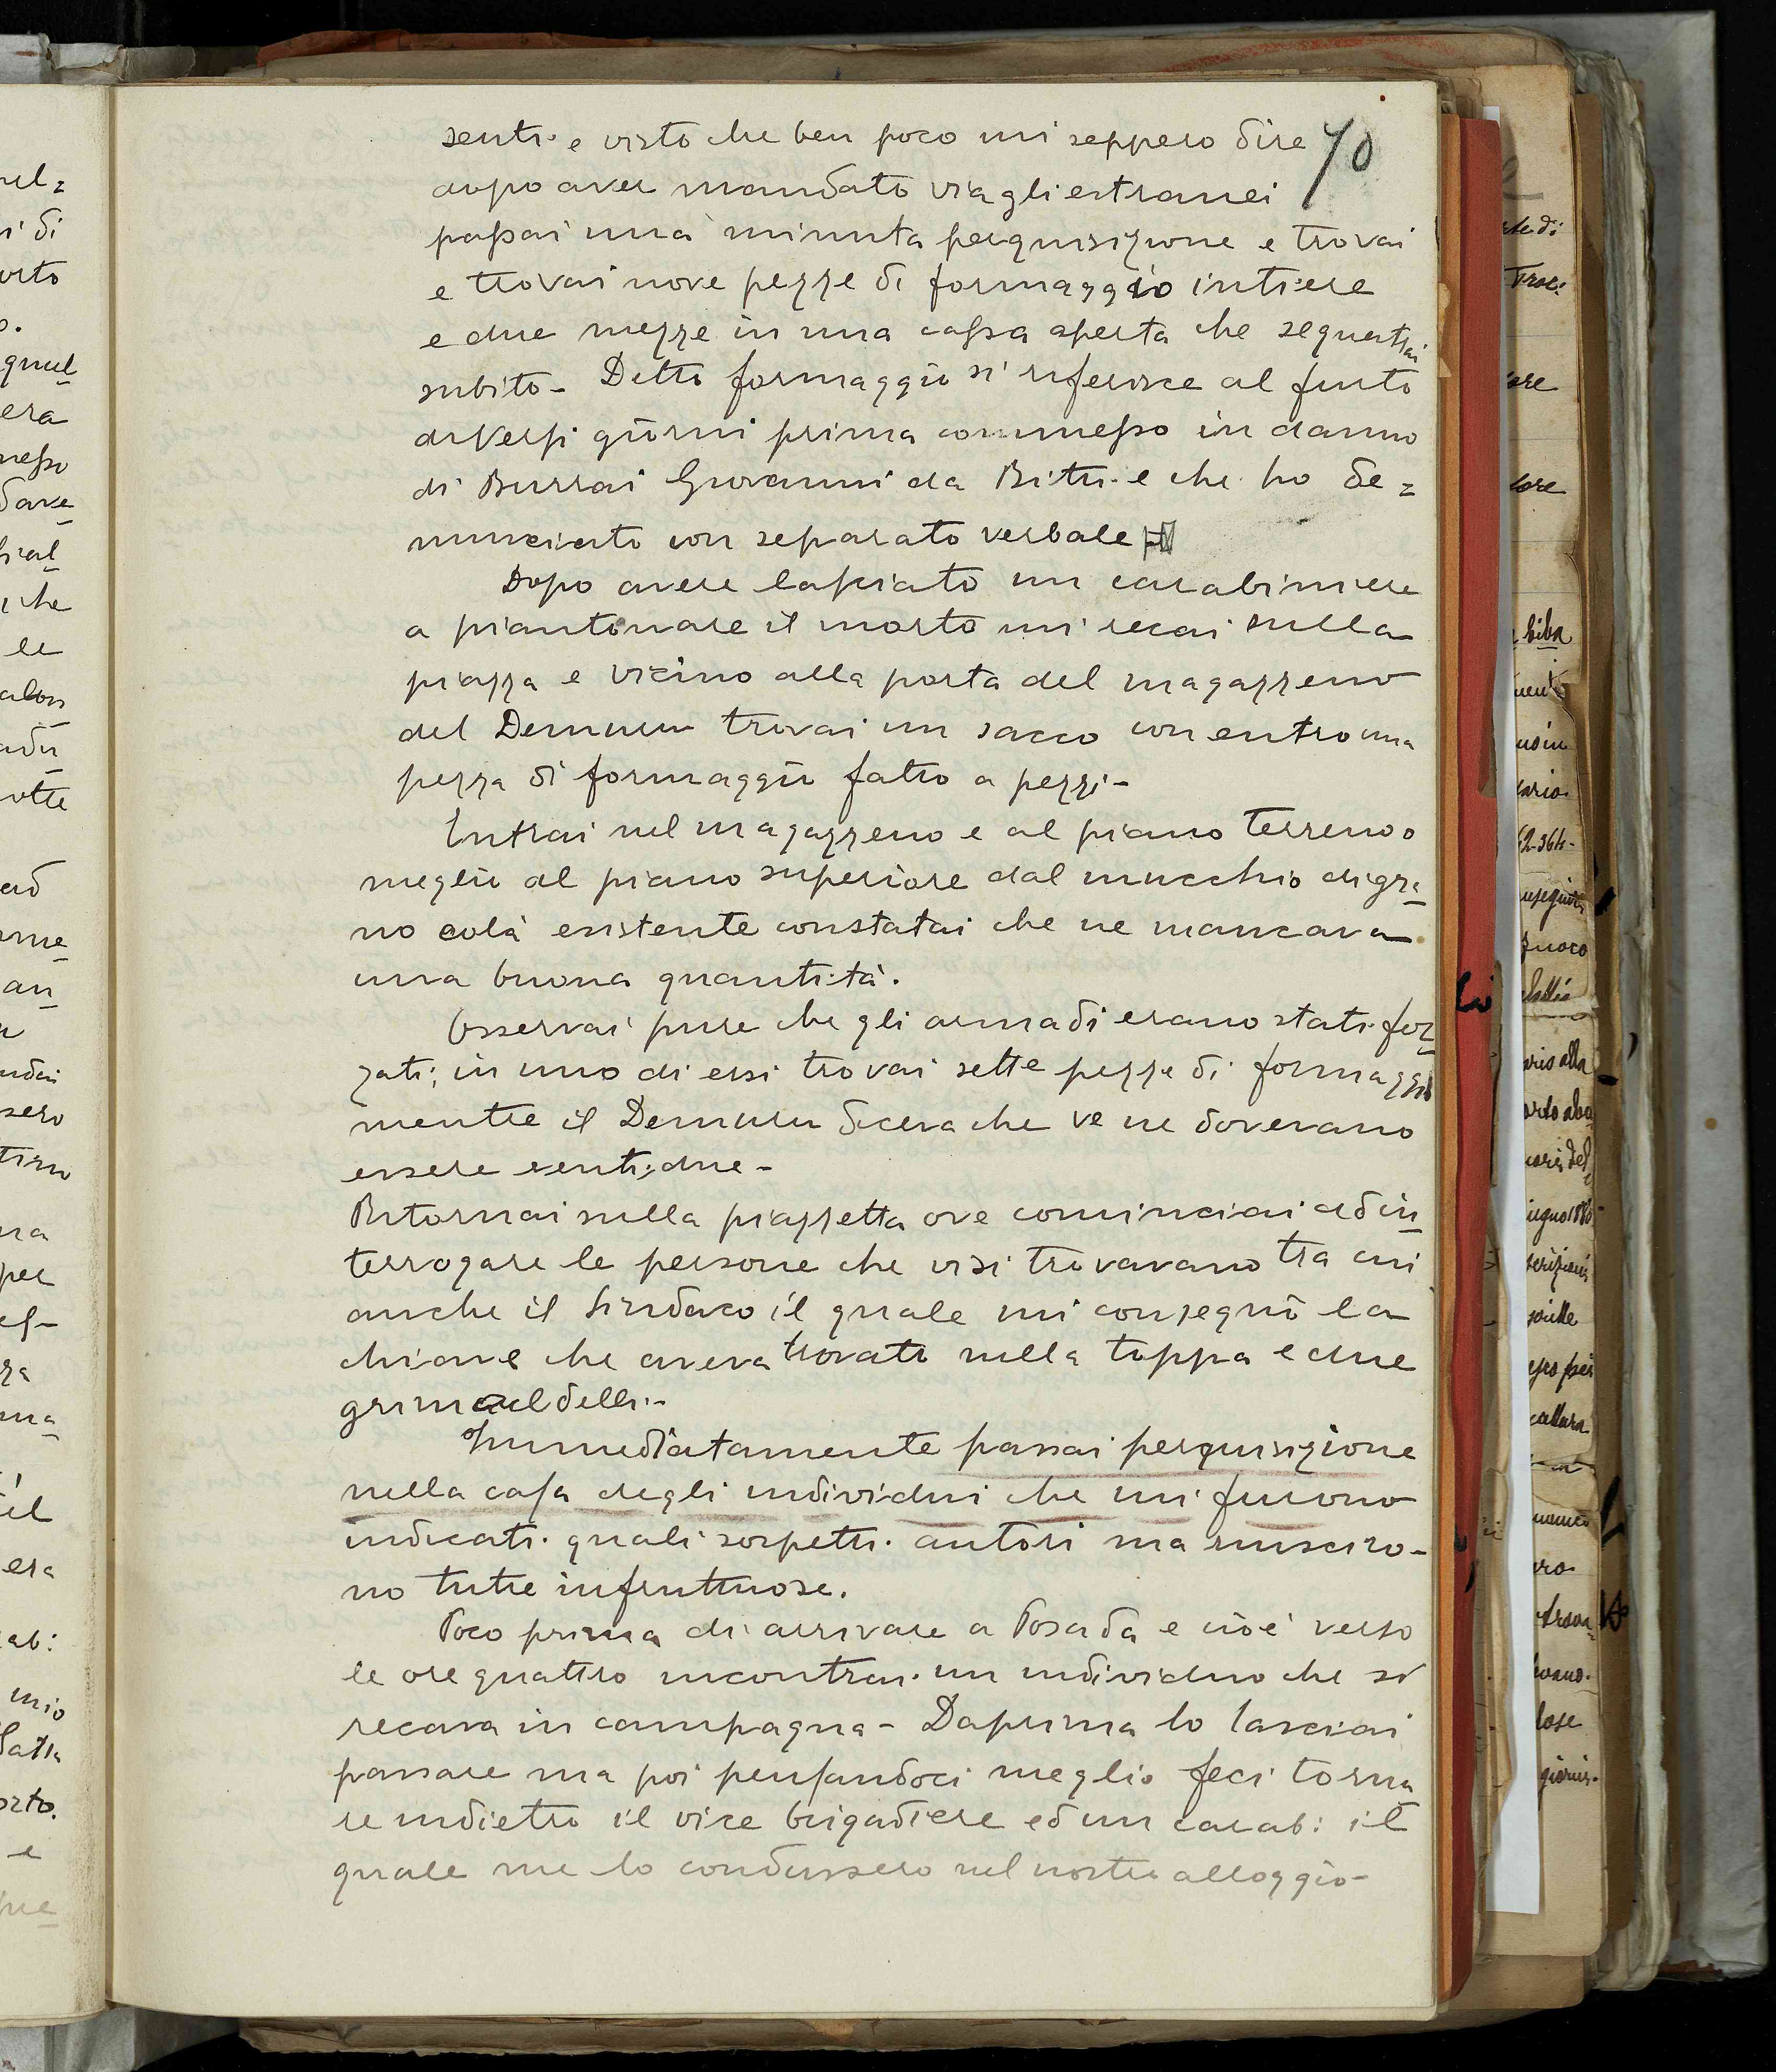 senti e visto che ben poco mi seppero dire
70
dopo aver mandato via gli estranei
passai una minuta perquisizione e trovai
e trovai nove pezze di formaggio intiere
e due mezze in una cassa aperta che sequestrai
subito - Detto formaggio si riferisce al furto
diversi giorni prima commesso in danno
di Burrai Giovanni da Bitti e che ho de=
nunciato con separato verbale
Dopo avere lasciato un carabiniere
a piantonare il morto mi recai sulla
piazza e vicino alla porta del magazzeno
del Demuru trovai un sacco con entro una
pezza di formaggio fatto a pezzi -
Entrai nel magazzeno e al piano terreno o
meglio al piano superiore dal mucchio di gra
no colà esistente constatai che ne mancava
una buona quantità.
Osservai pure che gli armadi erano stati for
zati; in uno di essi trovai sette pezze di formaggio
mentre il Demuru diceva che ve ne dovevano
essere ventidue -
Ritornai sulla piazzetta ove cominciai ad in
terrogare le persone che visi trovavano tra cui
anche il Sindaco il quale mi consegnò la
chiave che aveva trovato nella toppa e due
grimaldelli -
Immediatamente passai perquisizione
nella casa degli individui che mi furono
indicati quali sospetti autori ma rusciro-
no tutte infruttuose.
Poco prima di arrivare a Posada e cioè verso
le ore quattro incontrai un individuo che si
recava in campagna - Daprima lo lasciai
passare ma poi pensandoci meglio feci torna
re indietro il vice brigadiere ed un carab: il
quale me lo condussero nel nostro alloggio -